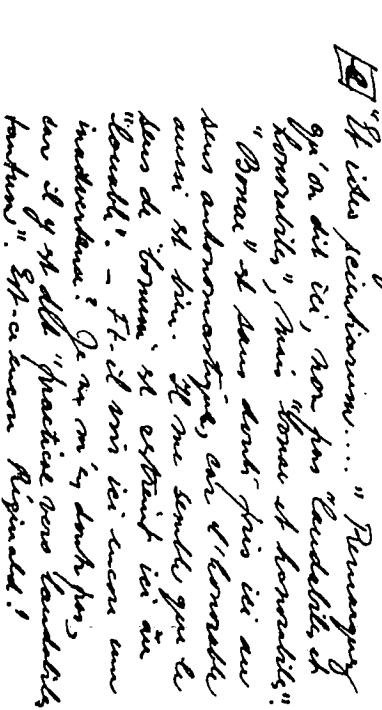 [e] "Et ideo scientiarum..." Remarquez
qu'on dit ici, non pas "laudabiles et
honorabiles", mais "bonae et honorabiles".
"Bonae" est sans doute pris ici au
sens antonomastique, car l'honorable
aussi est bien. Il me semble que le
sens de "bonum" est restreint ici au
"louable". - Ft-il voir ici encore une
inadvertance? Je ne m'en doute pas,
car il y est dit "practicae vero laudabiles
tantum". Est-ce encore Réginald?